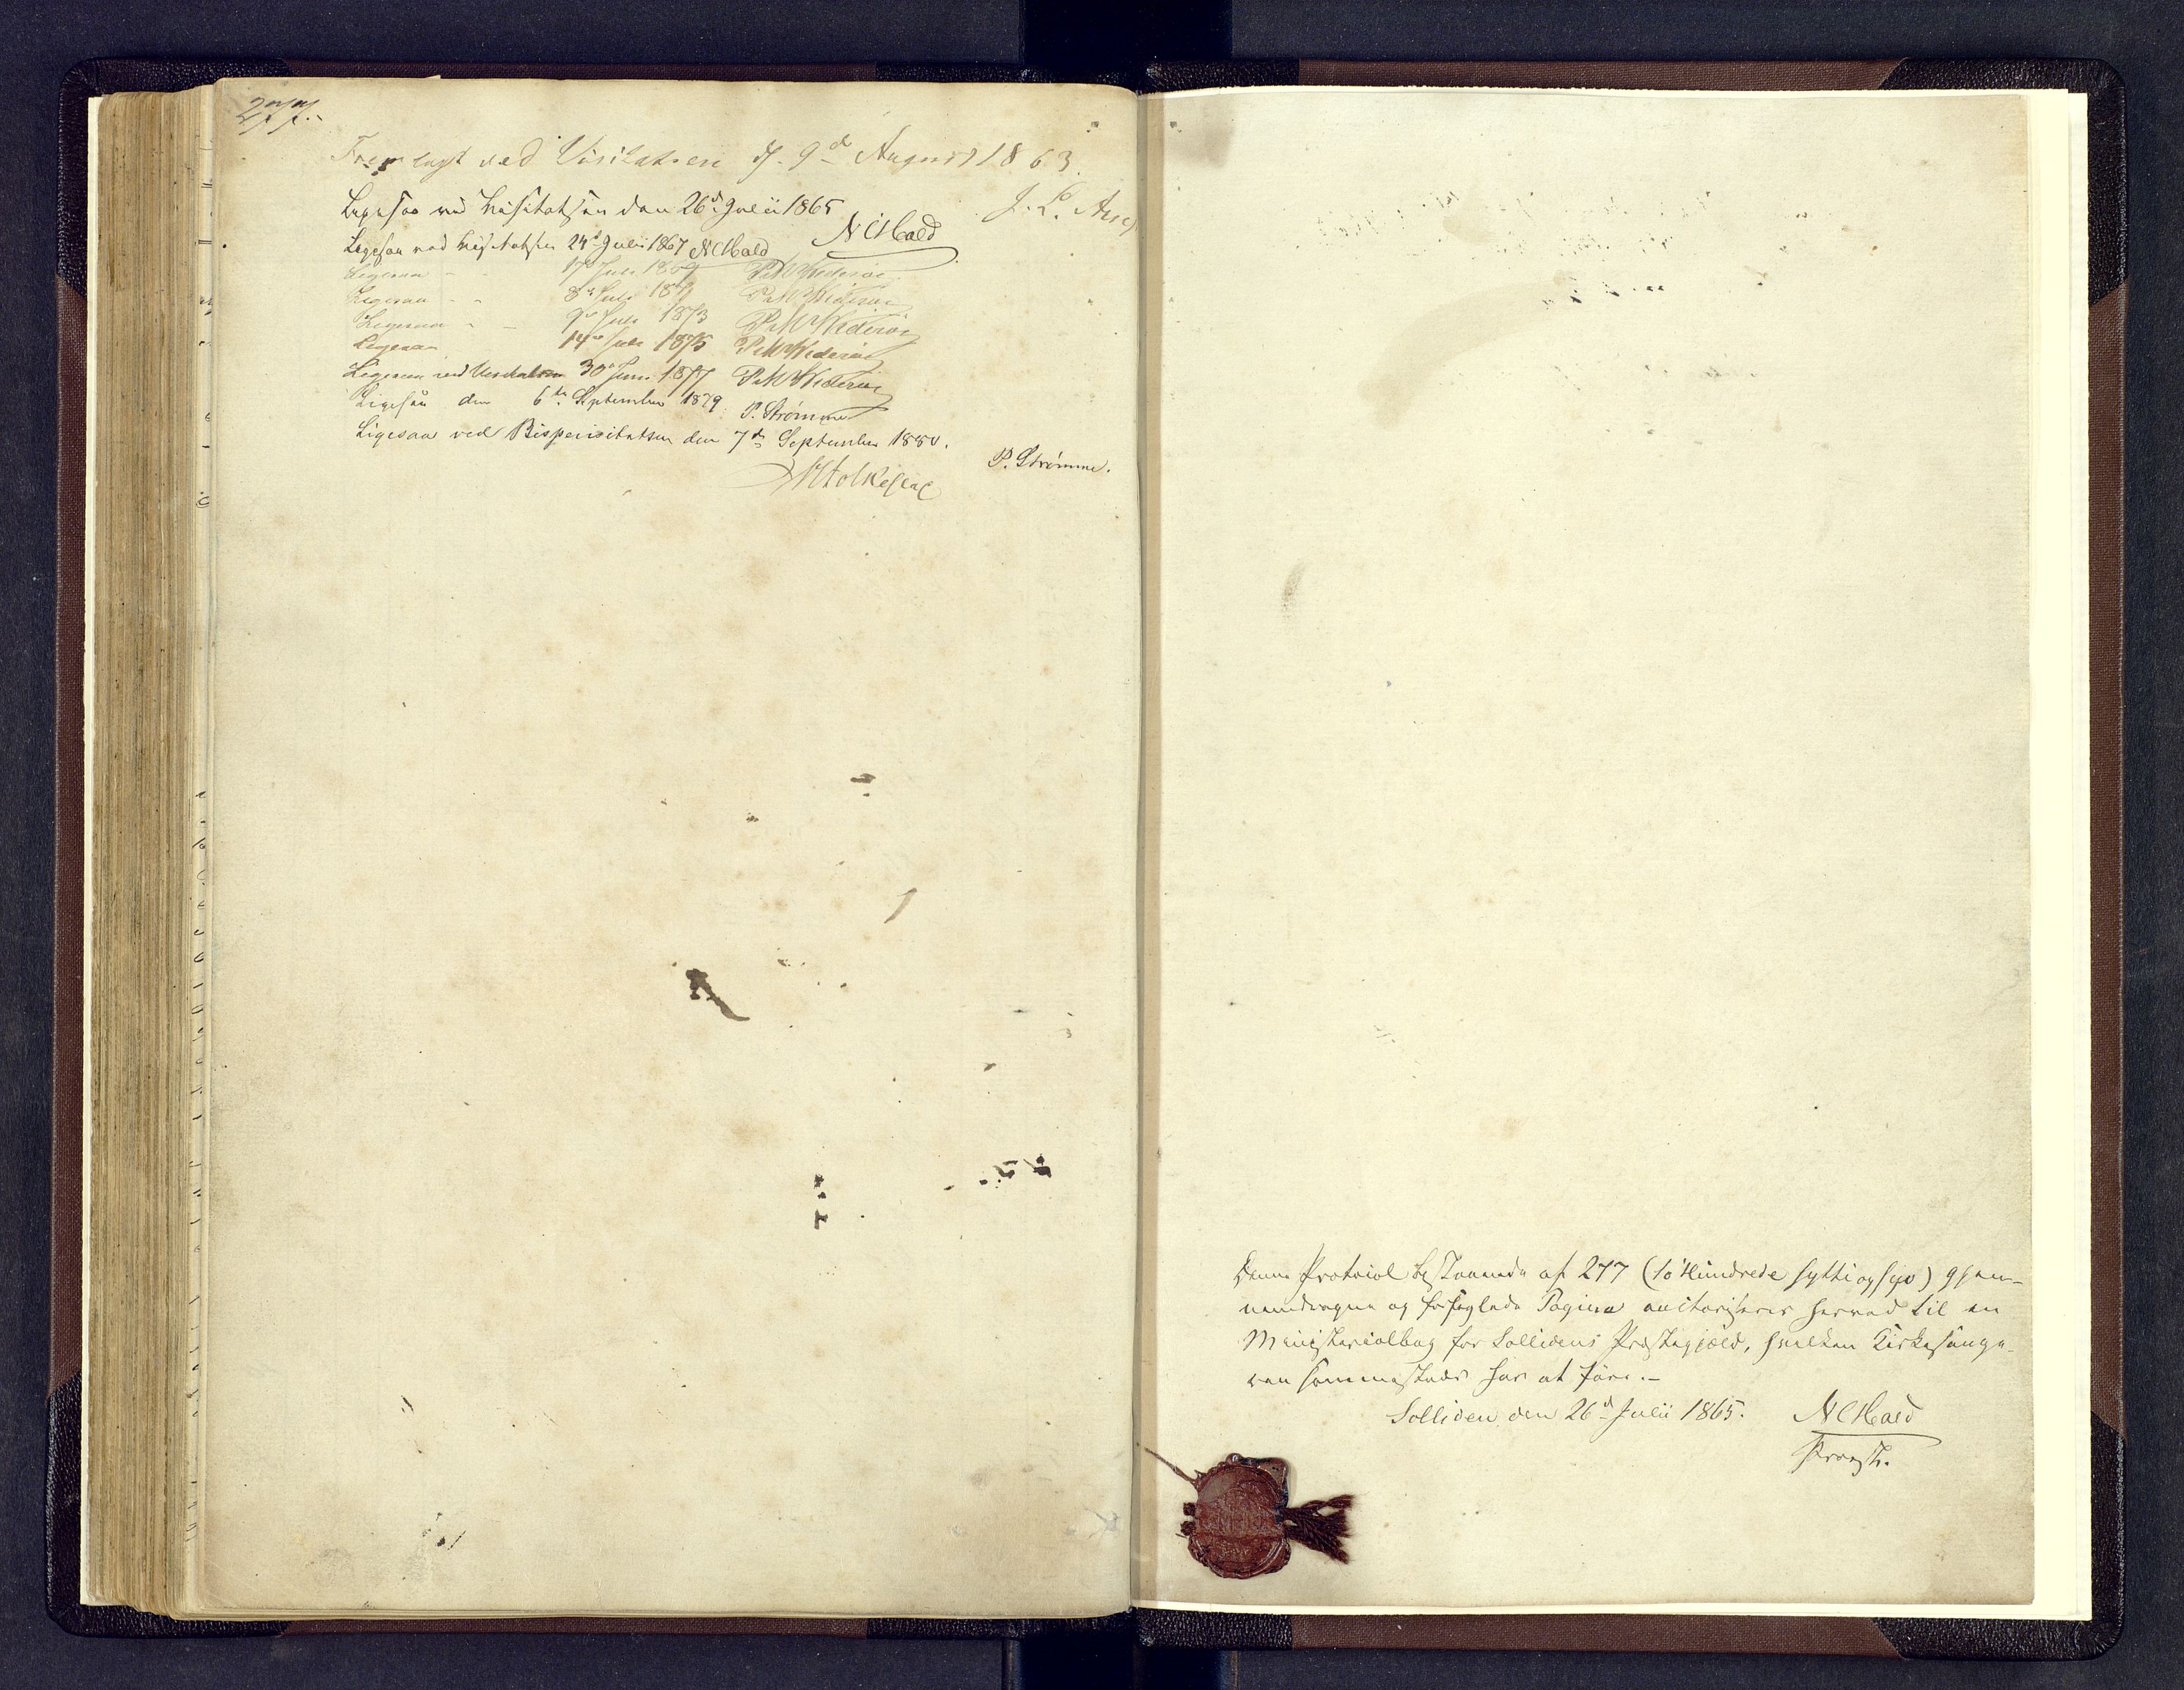 277.
Fremlagt ved Visitatsen d. 9d August 1863.
J. L. Arup
Ligesaa ved Visitatsen den 26d Julii 1865
N C Hald
Ligesaa ved Visitatsen 24d Julii 1867 N C Hald
Ligesaa - - 17de Juli 1869
Ligesaa - - 8de Juli 1871
Ligesaa - - 9de Juli 1873
Ligesaa 14de Juli 1875
Ligesaa ved Visitatsen 30de Juni 1877
Ligesaa den 6te September 1879. P. Strømme
Ligesaa ved Bispevisitatsen den 7de September 1880.
P. Strømme.
Denne Protocol bestaaende af 277 (to Hundrede sytti og syv) gjen-
nemdragne og forseglede Pagina auctoriseres herved til en
Ministerialbog for Sollidens Præstegjæld, hvilken Kirkesange-
ren sammesteds har at føre.-
Solliden den 26d Julii 1865.
N C Hald
Provst.